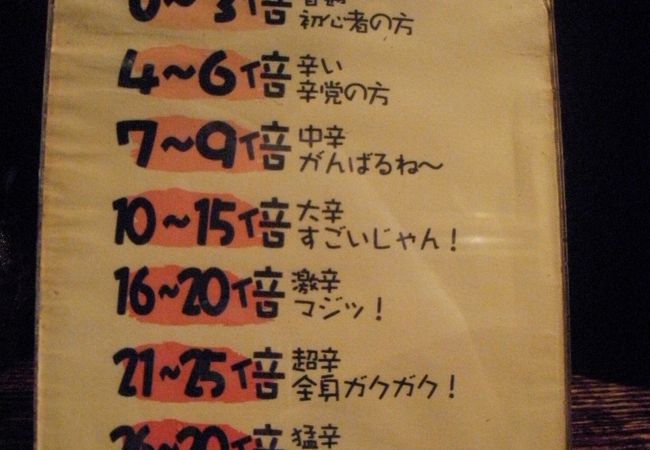 0～3倍
初心者の方
4～6倍 辛い
辛党の方
7～9倍 中辛
がんばるね～
10～15倍 大辛
すごいじゃん！
16～20倍 激辛
マジッ！
21～25倍 超辛
全身ガクガク！
倍 猛辛